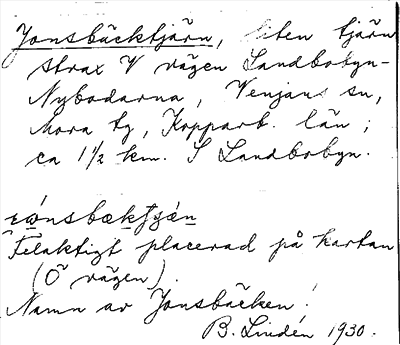 Jonsbäcktjärn, liten tjärn
strax V vägen Landbobyn-
Nybodarna, Venjans sn,
Mora tg, Kopparb. län;
ca 1½ km. S Landbobyn.
Felaktigt placerad på kartan
(Ö vägen).
Namn av Jonsbäcken!
B. Lindén 1930.